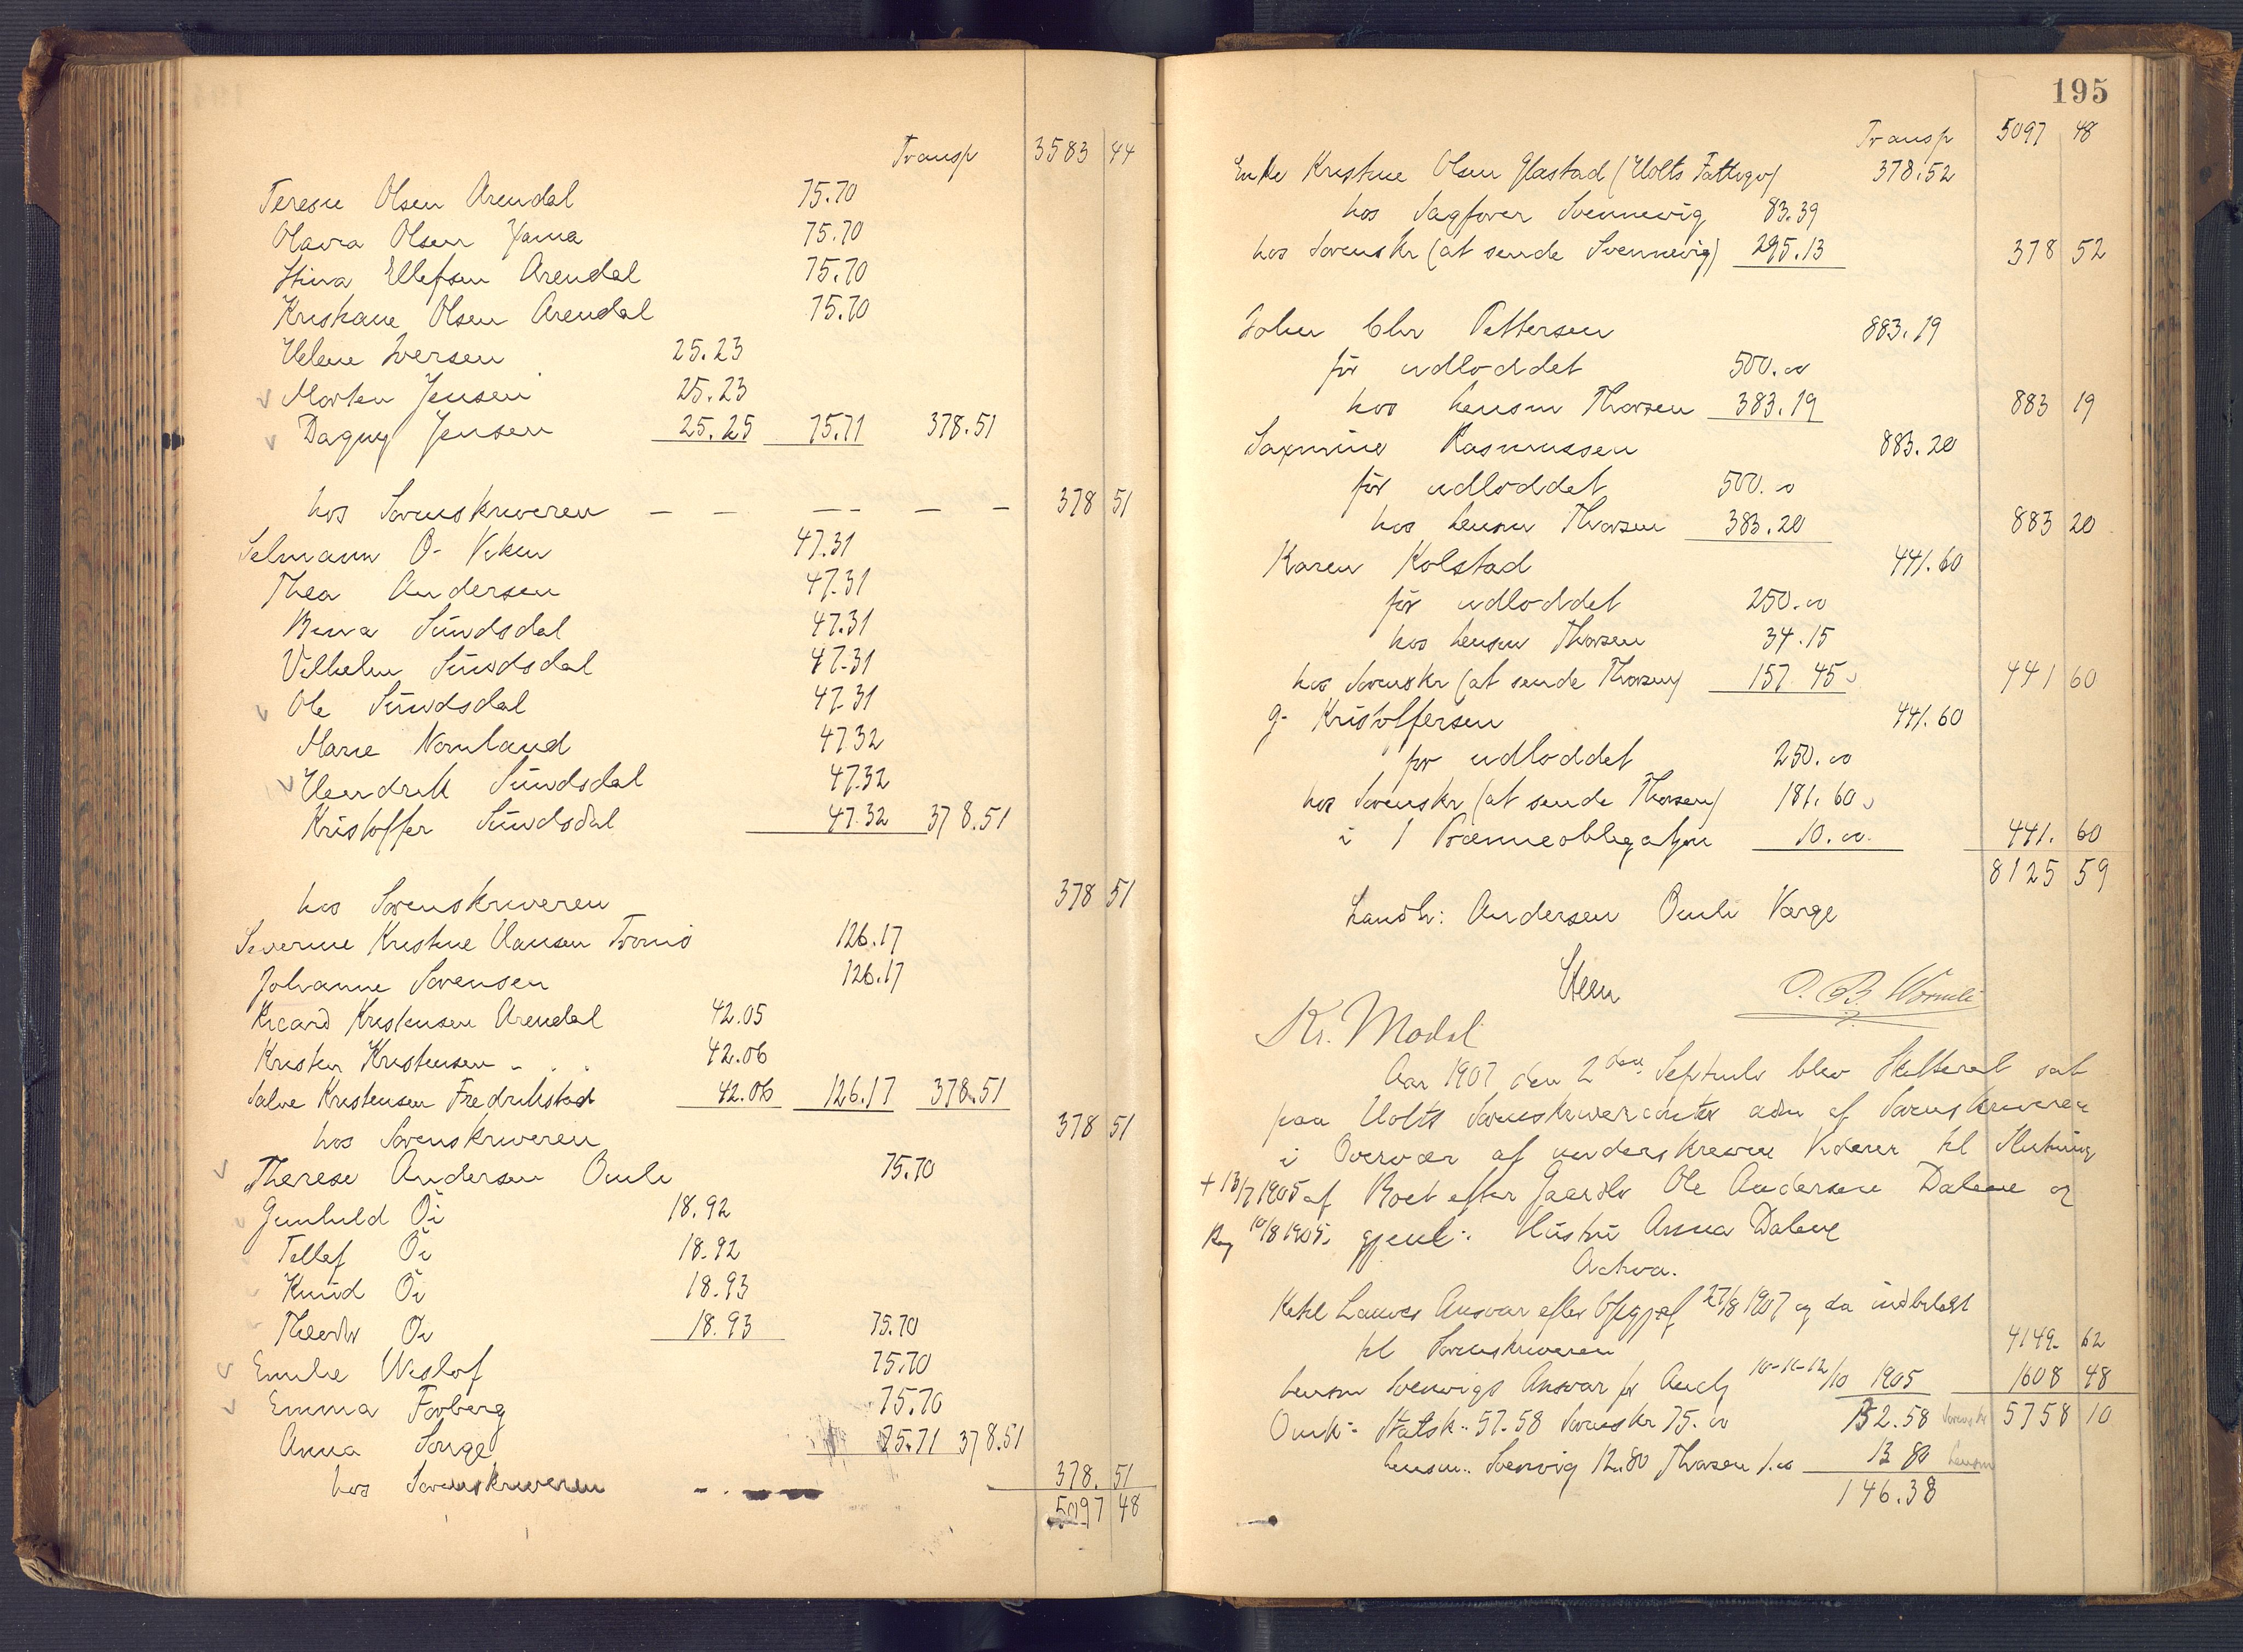 Transp 3583 44
Terese Olsen Arendal 75.70
Olava Olsen 75.70
Stina Ellefsen Arendal 75.70
Kristiane Olsen Arendal 75.70
Helene Iversen 25.23
Morten Jensen 25.23
Dagny Jensen 25.25 75.71 378.51
hos Sorenskriveren — — — — — — 378 51
Selmann O. Viken 47.31
Thea Andersen 47.31
Sundsdal 47.31
Vilhelm Sundsdal 47.31
Ole Sundsdal 47.31
Marie Nornland 47.32
Hendrik Sundsdal 47.32
Kristoffer Sundsdal 47.32 378.51
hos Sorenskriveren 378 51
Severine Kristine Hansen Tromö 126.17
Johanne Sørensen 126.17
Ricard Kristensen Arendal 42.05
Kristen Kristensen 42.06
Salve Kristensen Fredrikstad 42.06 126.17 378.51
hos Sorenskriveren 378 51
Therese Andersen Omli 75.70
Gunhild Öi 18.92
Tellef Öi 18.92
Knud Öi 18.93
Öi 18.93 75.70
Emilie 75.70
Emma Forberg 75.70
Anna Songe 75.71 378.51
hos Sorenskriveren 378. 51
5097 48
195
Transp 5097 48
Enke Kristine Olsen Glastad (Holts Fattigv) 378.52
hos Sagfører Svennevig 83.39
hos Sorenskr (at sende Svennevig) 295.13 378 52
John Chr Pettersen 883.19
för udloddet 500.00
hos Lensm Thorsen 383.19 883 19
Rasmussen 883.20
för udloddet 500.00
hos Lensm Thorsen 383.20 883 20
Karen Kolstad 441.60
för udloddet 250.00
hos Lensm Thorsen 34.15
hos Sorenskr (at sende Thorsen) 157 45 441 60
G. Kristoffersen 441.60
för udloddet 250.00
hos Sorenskr (at sende Thorsen) 181.60
i 1 Præmieobligation 10.00 441. 60
8125 59
Landh: Andersen Omli Værge
Steen O. B. Wormli
Kr. Modal
Aar 1907 den 2den Septemb blev Skifteret sat
paa Holts Sorenskriverkontor adm af Sorenskriveren
i Overvær af underskrevne Vidner til Slutning
+ 13/7 1905 af Boet efter Gaardbr Ole Andersen Dalene og
Reg 10/8 1905. gjenl: Hustru Anna Dalene
Activa.
Ketil Lauves Ansvar efter Opgjør af 27/8 1907 og da indbetalt
til Sorenskriveren 4149. 62
Lensm Svenvigs Ansvar for Auct 10-11-12/10 1905 1608 48
Omk: Statsk: 57.58 Sorenskr 75.00 132.58 Sorenskr 5758 10
Lensm: Svenvig 12.80 Thorsen 1.00 13 80 Lensm
146.38